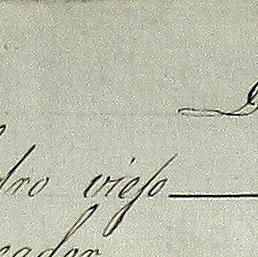 dro viejo
eador